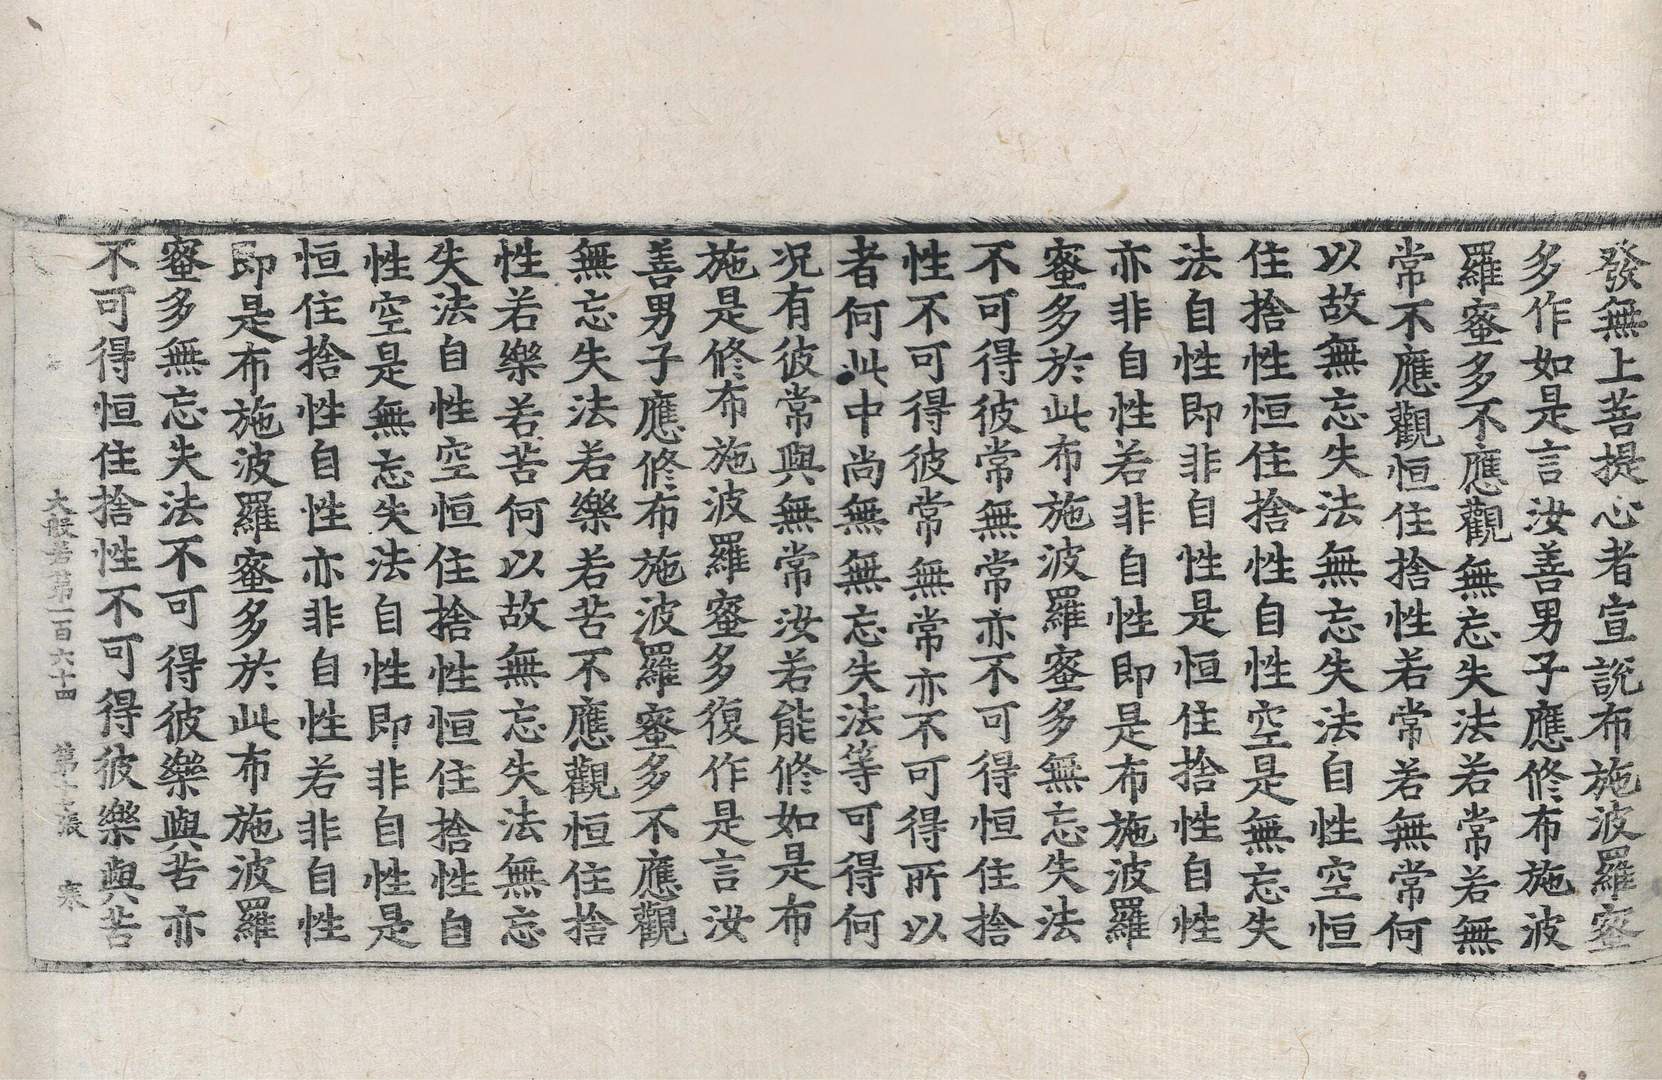 發無上菩提心者宣說布施波羅蜜
多作如是言汝善男子應修布施波
羅蜜多不應觀無忘失法若常若無
常不應觀恒住捨性若常若無常何
以故無忘失法無忘失法自性空恒
住捨性恒住捨性自性空是無忘失
法自性即非自性是恒住捨性自性
亦非自性若非自性即是布施波羅
蜜多於此布施波羅蜜多無忘失法
不可得彼常無常亦不可得恒住捨
性不可得彼常無常亦不可得所以
者何此中尚無無忘失法等可得何
况有彼常與無常汝若能修如是布
施是修布施波羅蜜多復作是言汝
善男子應修布施波羅蜜多不應觀
無忘失法若樂若苦不應觀恒住捨
性若樂若苦何以故無忘失法無忘
失法自性空恒住捨性恒住捨性自
性空是無忘失法自性即非自性是
恒住捨性自性亦非自性若非自性
即是布施波羅蜜多於此布施波羅
蜜多無忘失法不可得彼樂與苦亦
不可得恒住捨性不可得彼樂與苦
大般若第一百六十四 第十七張 柰